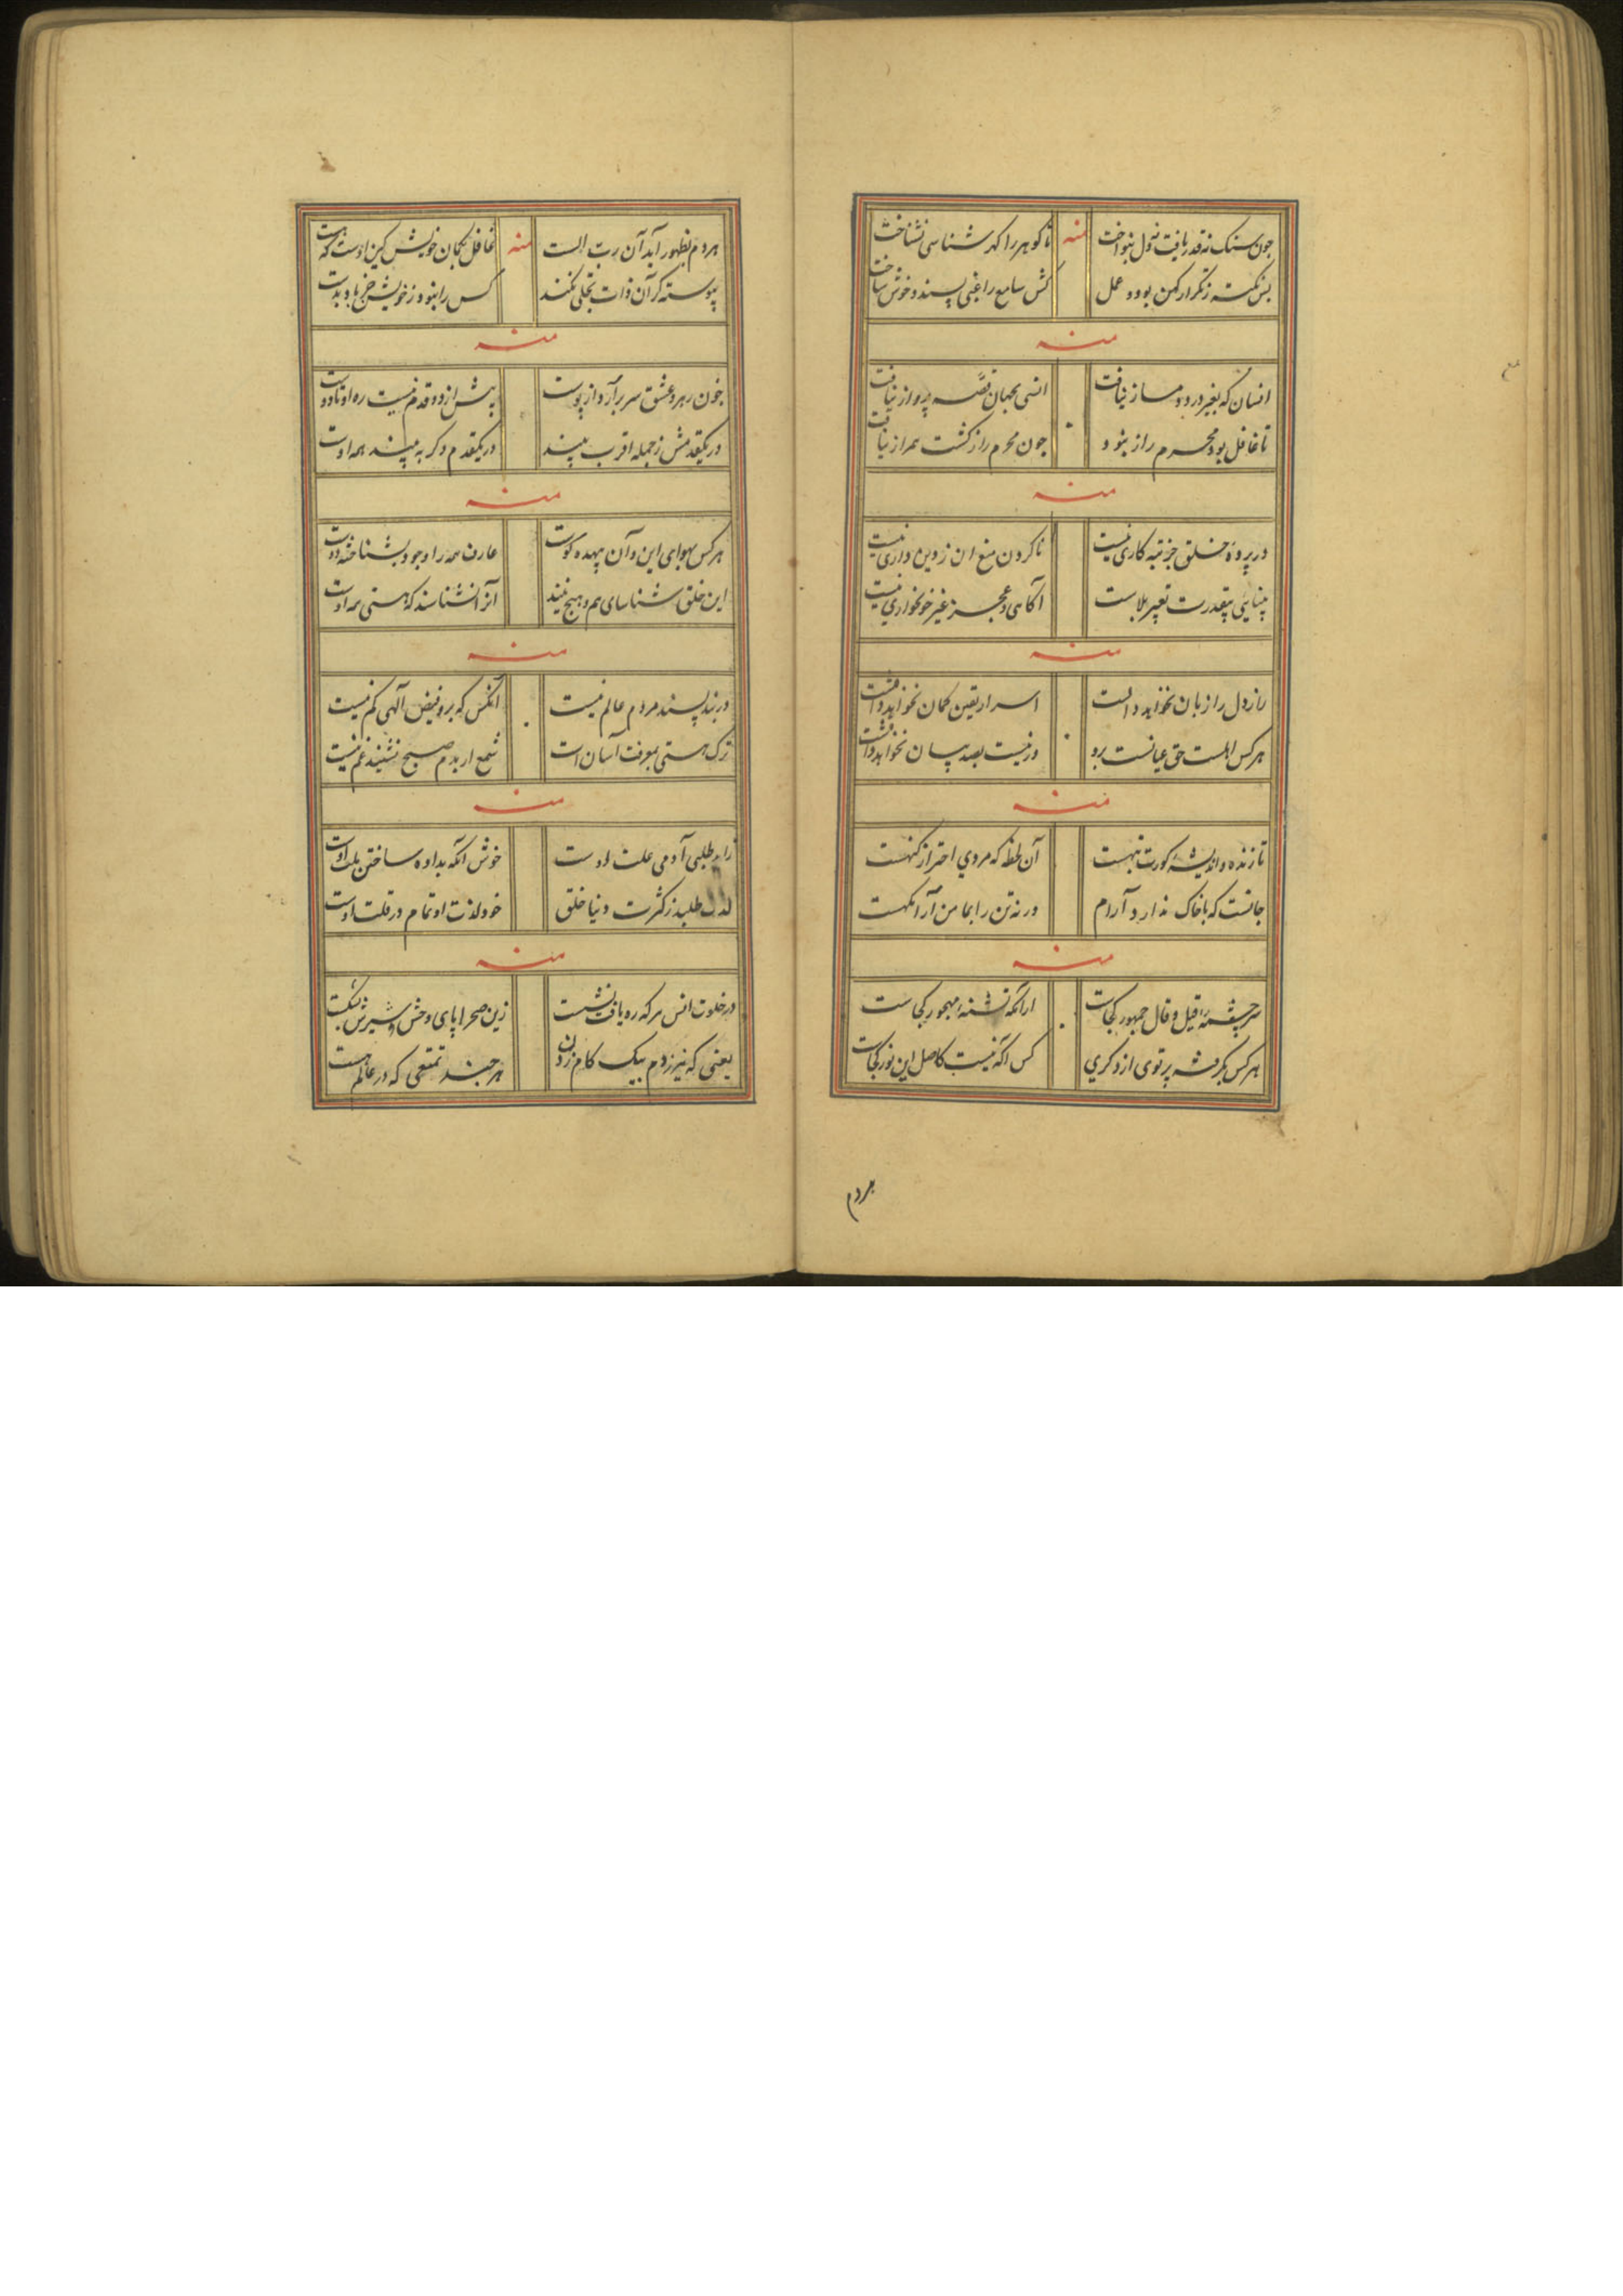 چون سنک نه قدر یافت نه دل بنواخت منه تا کوهر را کهر شناسی نشناخت
بس نکته ز تکرار کهن بود و عمل کش سامع را غبی پسند و خوش ساخت
منه
انسان که بغیر درد دمساز نیافت انسی بجهان قصه پرداز نیافت
تا غافل بود محرم راز نبود چون محرم راز کشت همراز نیافت
منه
در پرده خلق جز تبه کاری نیست نا کردن منع ان ز دین داری نیست
بینایی بیقدرت تعبیر بلاست آکاهی و عجز غیر خونخواری نیست
منه
راز دل را زبان نخواهد دانست اسرار یقین کمان نخواهد دانست
هر کس اهلست حق عیانست برو ور نیست بصد بیان نخواهد دانست
منه
تا زنده و اندیشه کورت نبهست آن لحظه که مردی احتراز کنهست
جانست که با خاک ندارد آرام ور نه تن را بما من آرامکهست
منه
سرچشمه قیل و قال جمهور کجاست ارانکه تشنه مهجور کجاست
هر کس بکرفته پرتوی از دکری کس اکه نیست کاصل این نور کجاست
هردم
هر دم بظهور آید آن رب الست منه غافل بکمان خویش کین اوست که هست
پیوسته کر آن ذات تجلی نکند کس را نبود ز خویش جز باد بدست
منه
چون رهرو عشق سر بر آرد از پوست بیش از دو قدم نیست ره او تا دوست
در یکقدمش ز جمله اقرب بیند در یکقدم دکر به بیند همه اوست
منه
هر کس بهوای این و آن بیهده کوست عارف همه را وجود بشناخته دوست
این خلق شناسای هم و هیچ نیند آنرا نشناسند که هستی همه اوست
منه
در بند پسند مردم عالم نیست آنکس که برو فیض الهی کم نیست
ترک هستی بمعرفت آسان است شمع ار بدم صبح نشیند غم نیست
منه
طلبی آدمی علت اوست خوش آنکه بداده ساختن ملت اوست
طلبد ز کثرت دنیا خلق خود لذت او تمام در قلت اوست
منه
در خلوت انس هر که ره یافت نشست زین صحرا پای وحش و شیرش بشکست
یعنی که نیرزدم بیک کام زدن هر چند تمتعی که در عالم هست